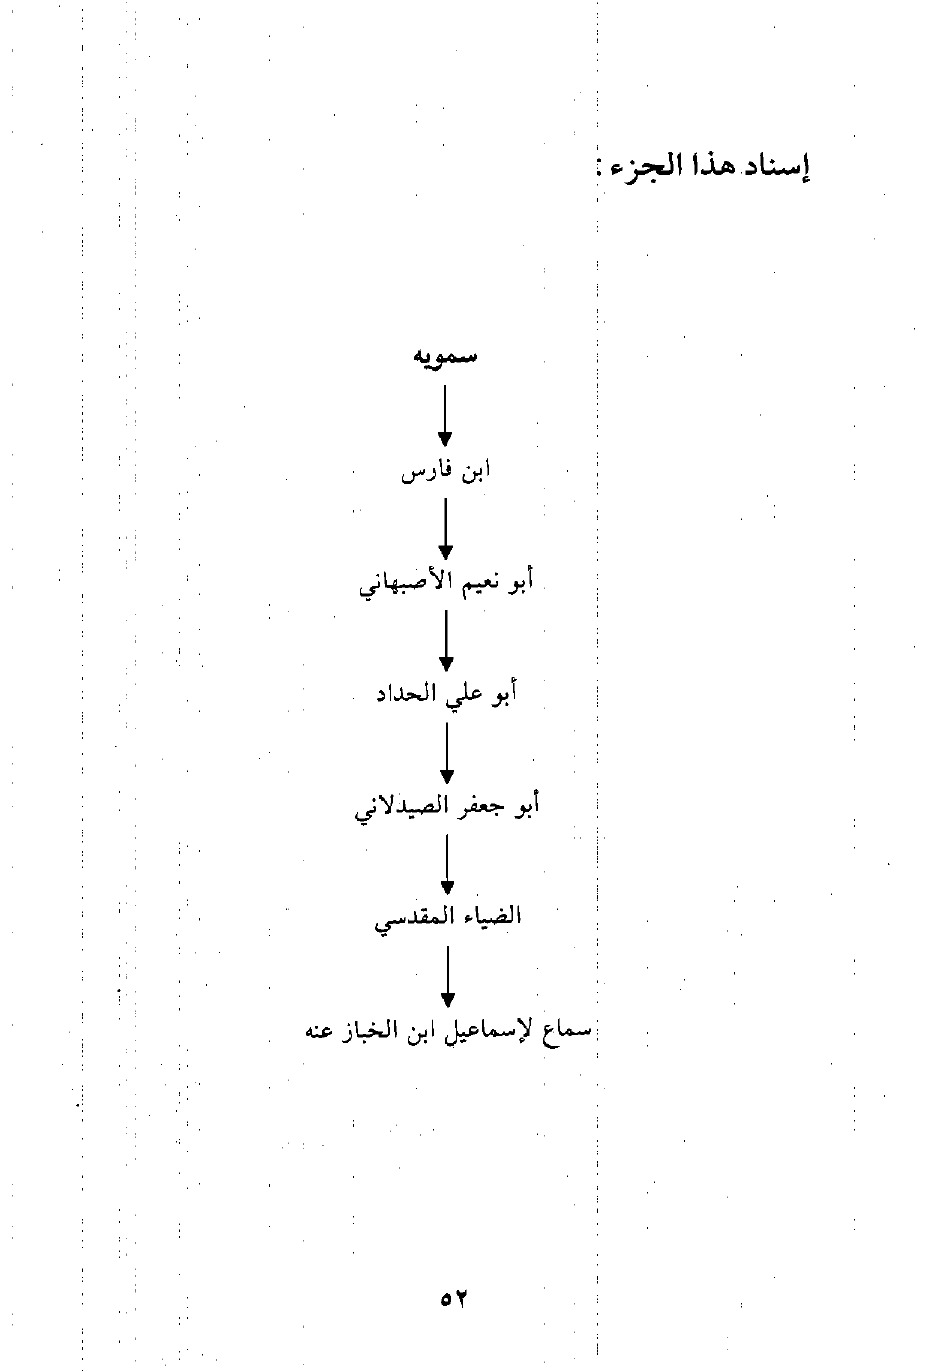 إسناد هذا الجزء :
سمويه
ابن فارس
أبو نعيم الأصبهاني
أبو علي الحداد
أبو جعفر الصيدلاني
الضياء المقدسي
سماع لإسماعيل ابن الخباز عنه
٥٢